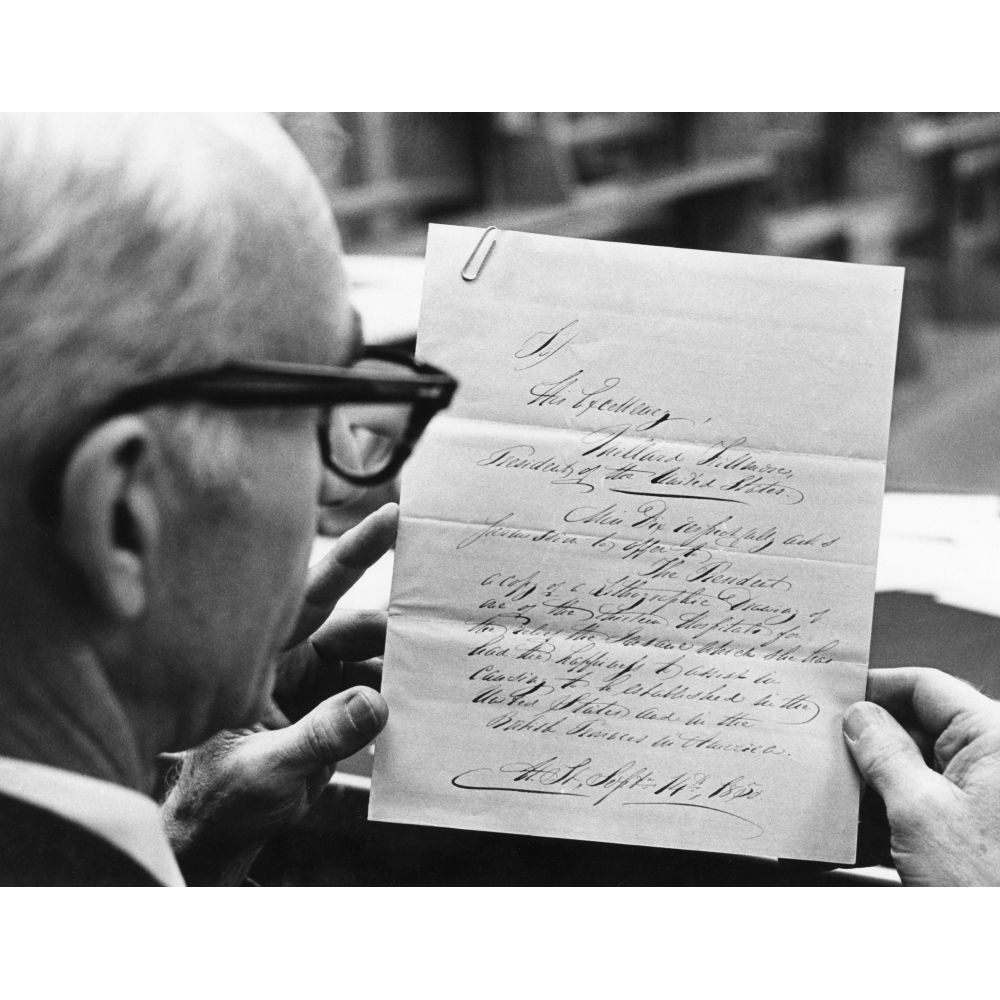 To
His Excellency,
Millard Fillmore,
President of the United States.
Miss Dix respectfully asks
permission to offer to
The President
a copy of a Lithographic Drawing of
one of the thirteen Hospitals for
the relief of the Insane which she has
had the happiness to assist in
causing to be established in the
United States and in the
British Provinces in America.
Sept. 14th, 1850.